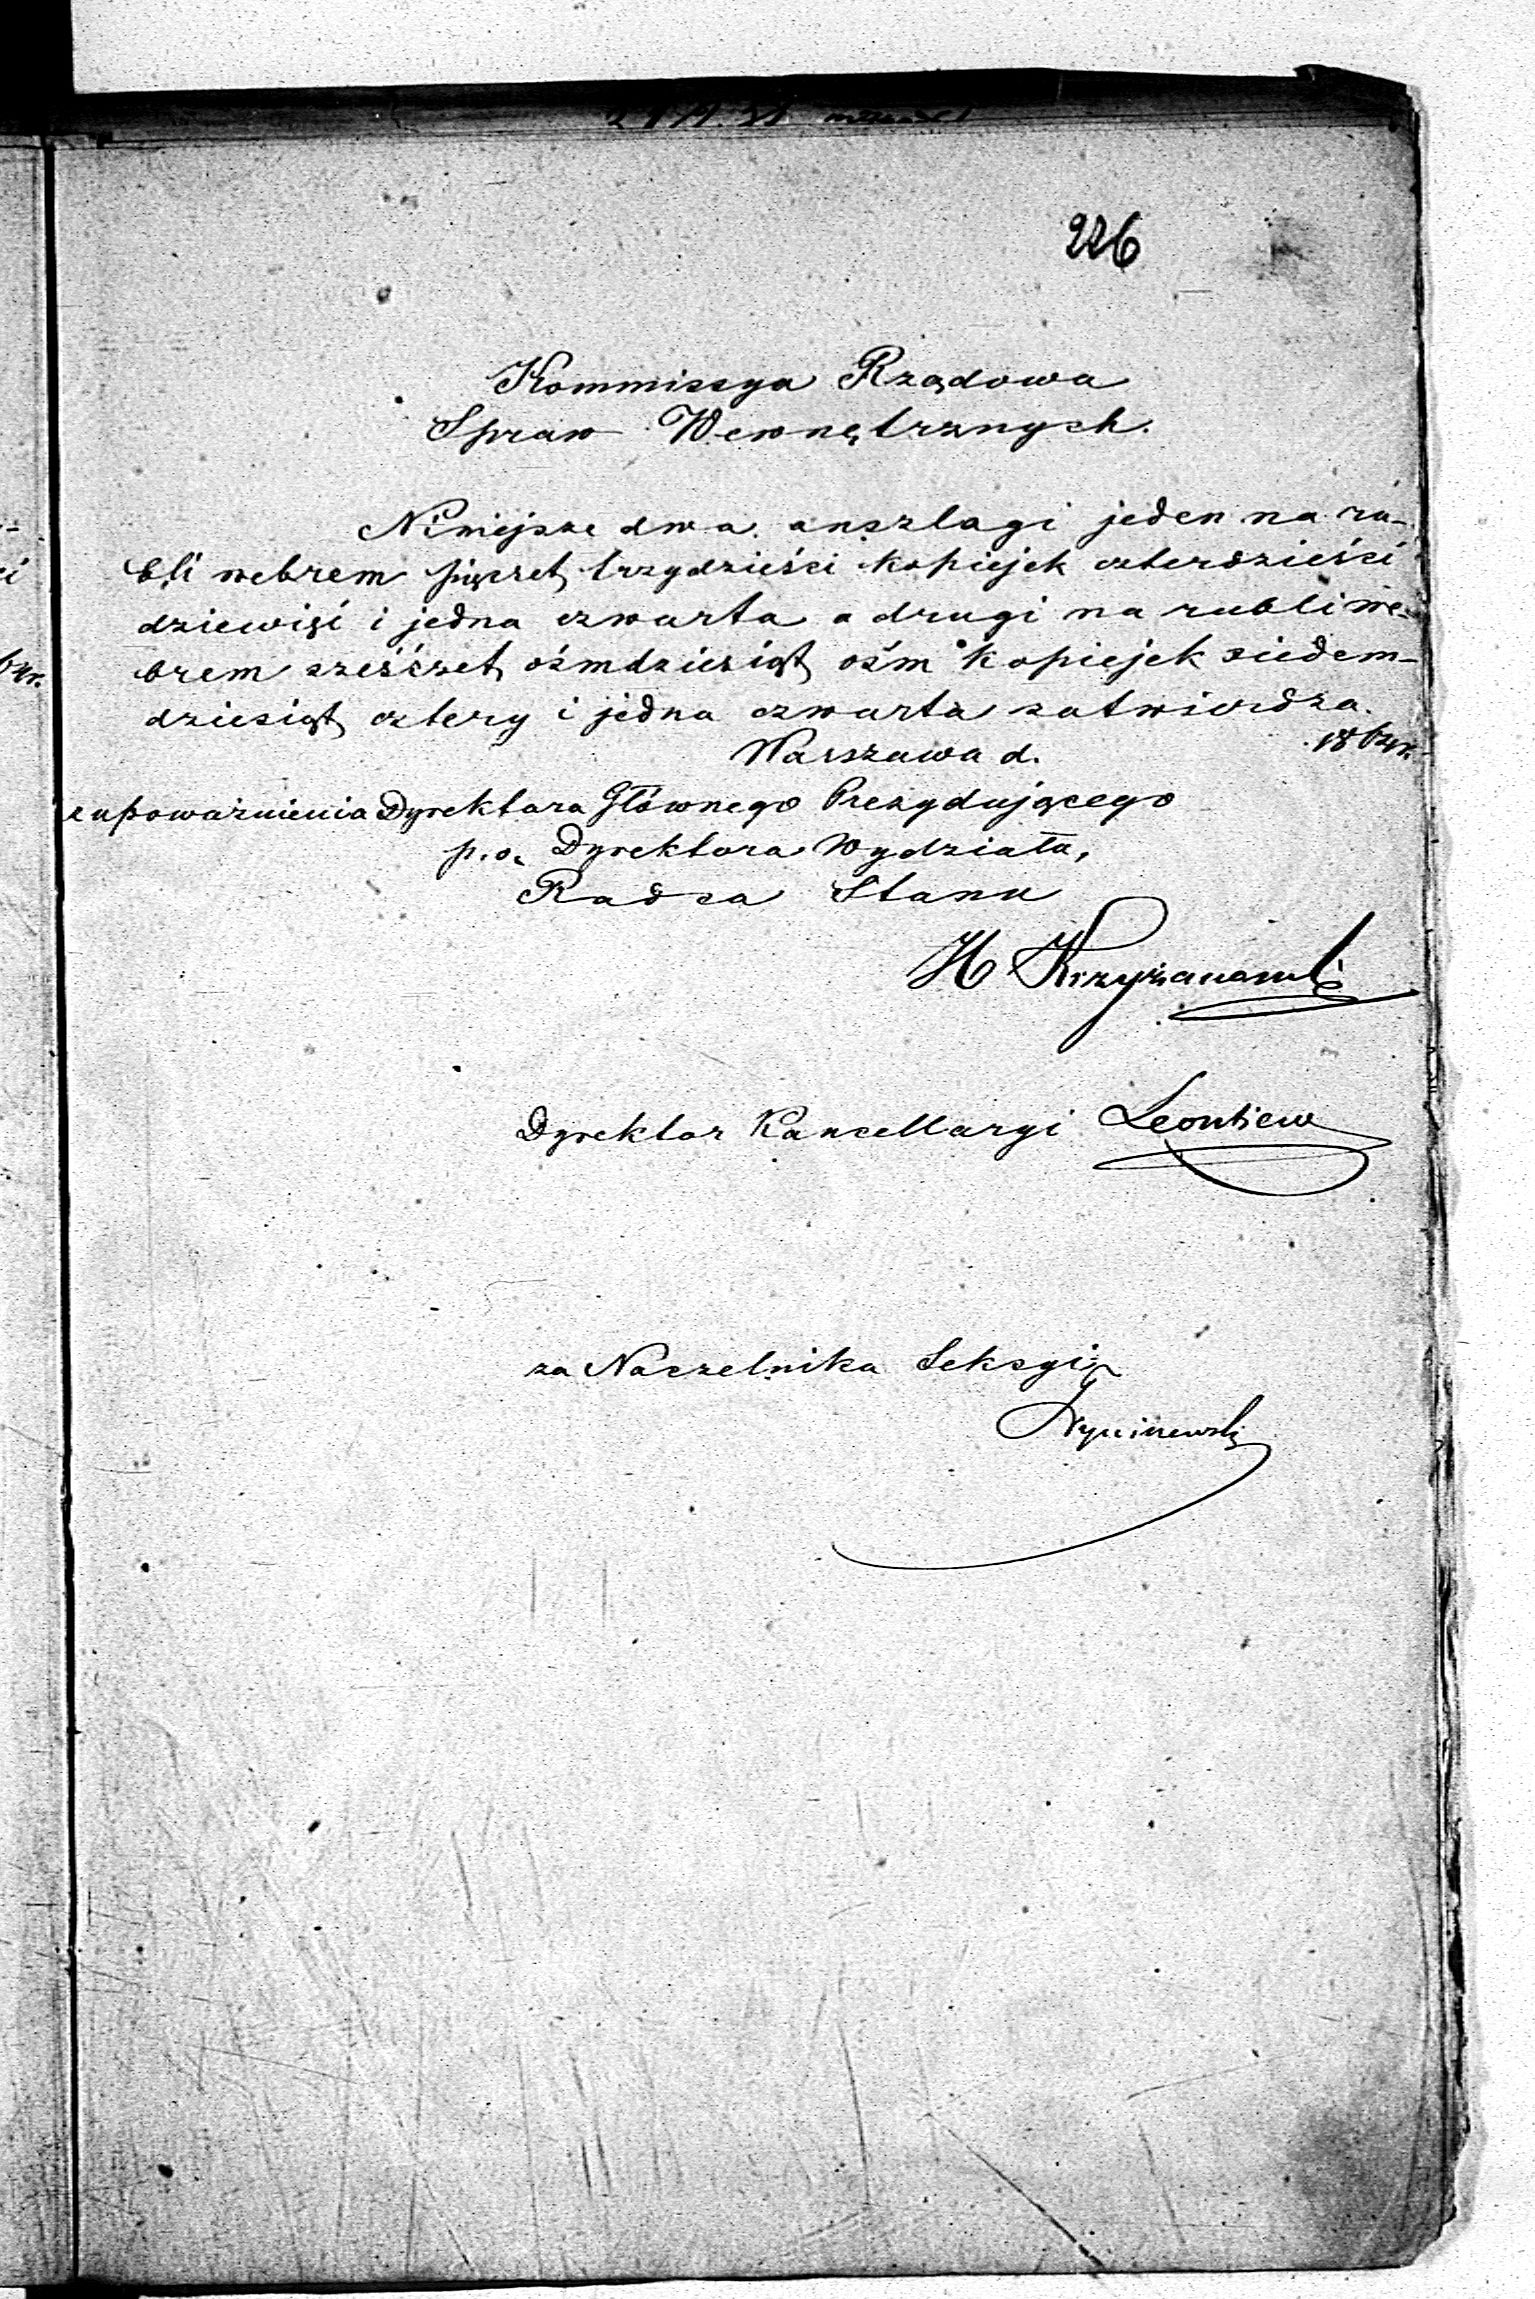 226
Kommissya Rządowa
Spraw Wewnętrznych.
Niniejsze dwa anszlagi jeden na ru-
bli srebrem pięcset trzydzieści kopiejek czterdzieści
dziewięć i jedna czwarta a drugi na rubli sre-
brem sześćset ośmdziesiąt ośm kopiejek siedem-
dziesiąt cztery i jedna czwarta zatwierdza.
Warszawa d. 1864r.
z upoważnienia Dyrektora Głównego Prezydującego
p.o. Dyrektora Wydziału,
Radca Stanu
H Krzyżanowski
Dyrektor Kancellaryi Leontiew
za Naczelnika Sekcyi